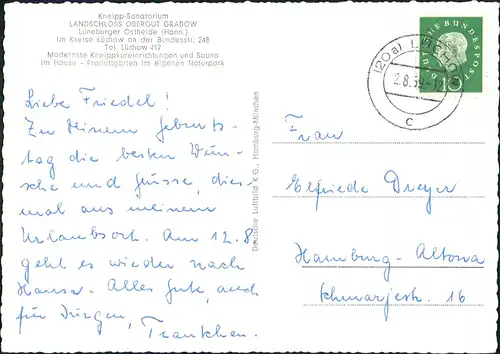 Kneipp-Sanatorium
LANDSCHLOSS OBERGUT GRABOW
Lüneburger Ostheide (Hann.)
Im Kreise Lüchow an der Bundesstr. 248
Tel. Lüchow 417
Modernste Kneippkureinrichtungen und Sauna
im Hause - Freiluftgärten im eigenen Naturpark
Liebe Friedel!
Zu Deinem Geburts-
tag die besten Wün-
sche und Grüsse, dies-
mal aus meinem
Urlaubsort. Am 12.8.
geht es wieder nach
Hause. Alles Gute, auch
für Jürgen,
Deutsche Luftbild K.G., Hamburg-München
DEUTSCHE BUNDESPOST
10
(20a)
2.8.59
c
Frau
Elfriede Dreyer
Hamburg-Altona
16